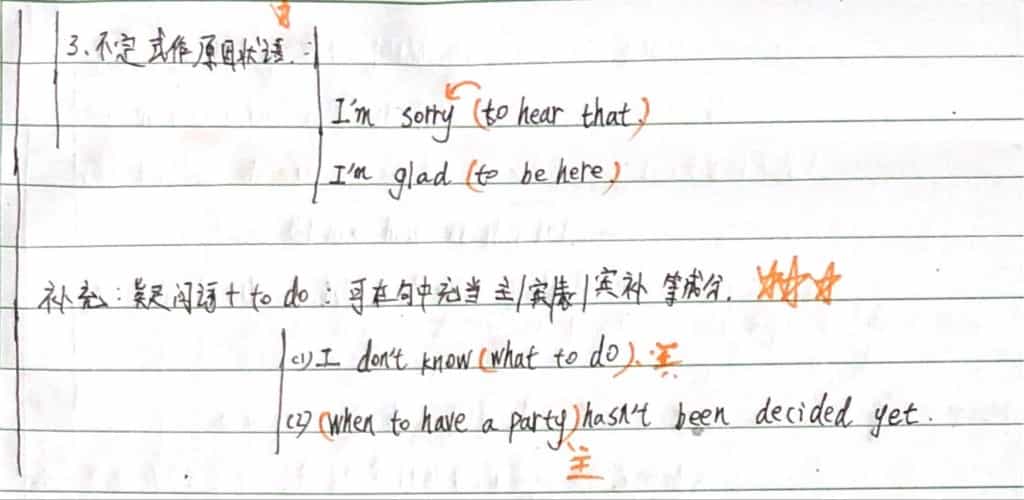 3、不定式作原因状语:
I'm sorry (to hear that.)
I'm glad (to be here.)
补充:疑问词+ to do:可在句中充当 主/宾/表/宾补 等成分.
(1) I don't know (what to do). 宾
(2) (when to have a party) hasn't been decided yet.
主